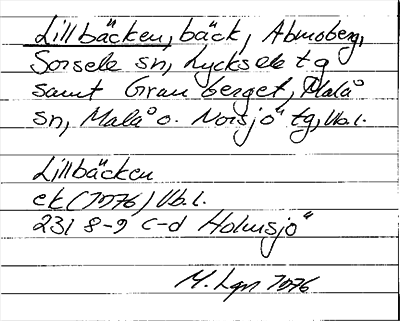 Lillbäcken, bäck, Abmoberg,
Sorsele sn, Lycksele tg
samt Granberget, Malå
sn, Malå o. Norsjö tg, Vb.l.
Lillbäcken
ek (1976) Vb.l.
231 8-9 c-d Holmsjö
M. Lgn 1976